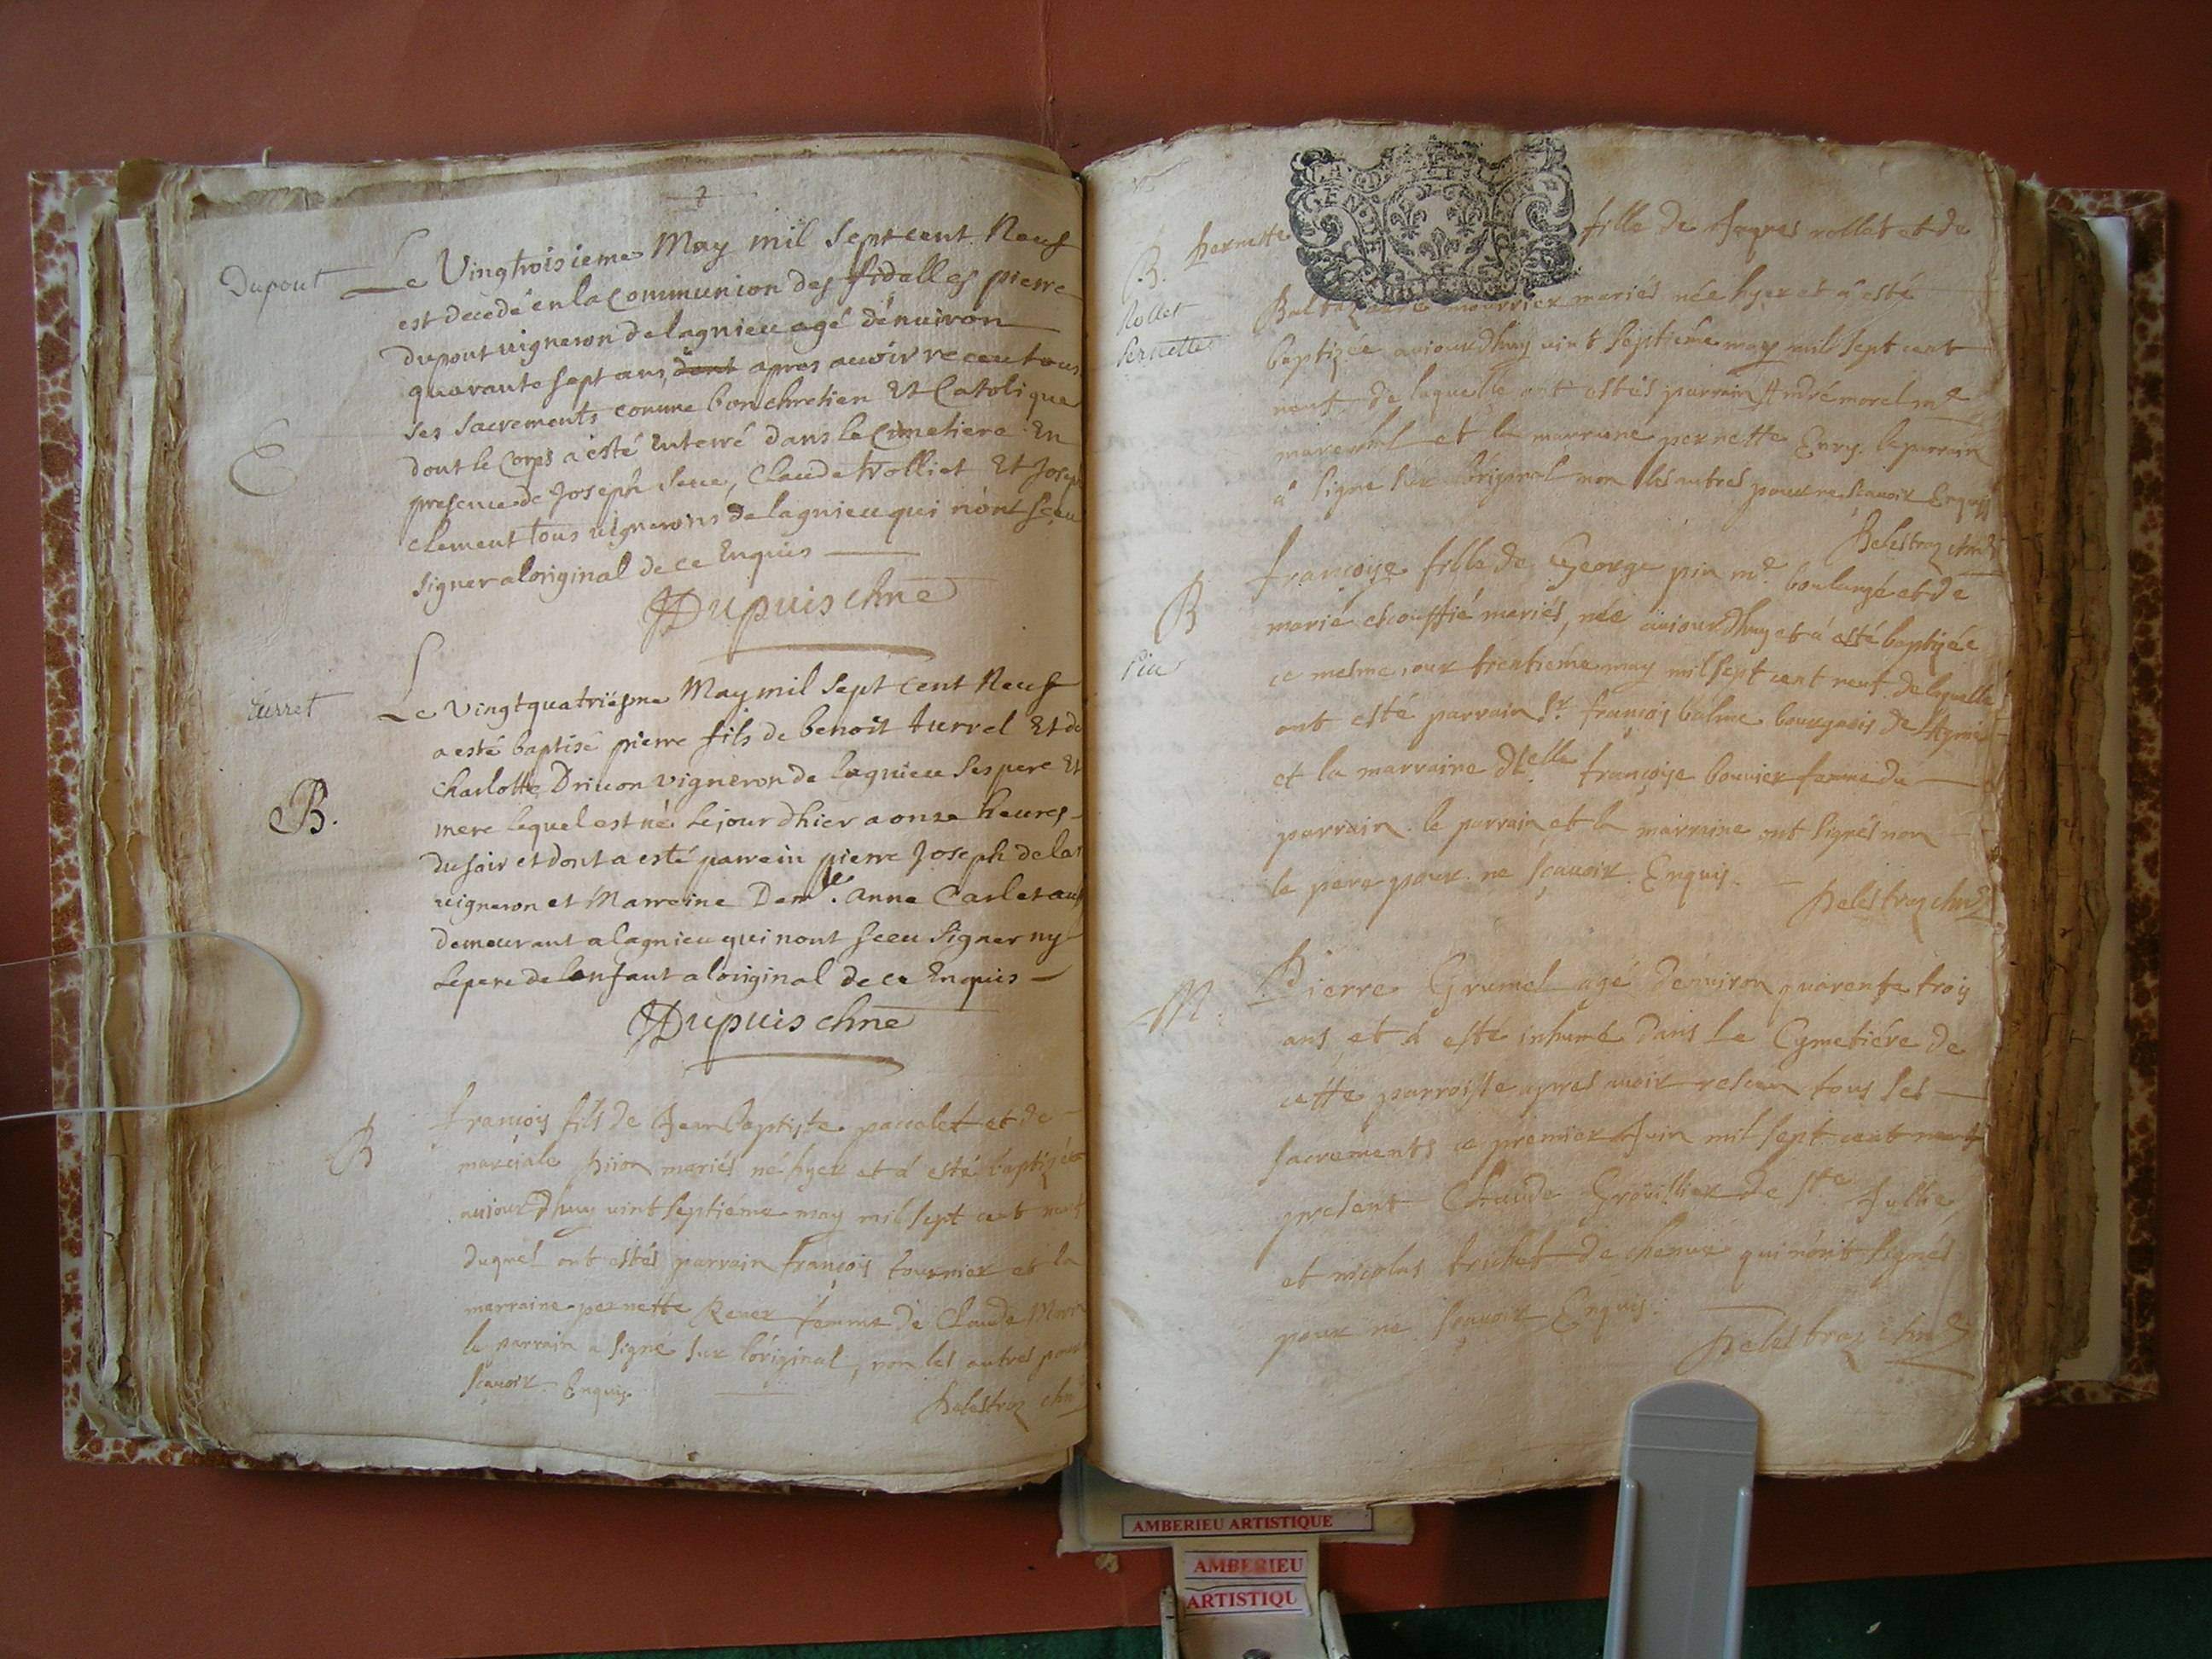 Dupont
Le Vingtroisieme May mil Sept cent Neuf
est decedé en la Communion des fidelles pierre
dupont vigneron de lagnieu agé dénuiron
quarante sept ans, dont apres auoir receu tous
ses Sacrements comme bon chretien Et Catolique
E
dont le Corps a esté Enterré dans le Cimetiere En
presence de Joseph Seue, Claude trolliet Et Joseph
clement tous vignerons de lagnieu qui n'ont sceu
signer a loriginal de ce Enquis
Dupuis chne
Le Vingt quatriesme May mil Sept Cent Neuf
a esté baptisé pierre fils de benoit turrel Et de
Charlotte Driuon vigneron de lagnieu Ses pere Et
B.
mere lequel est né Le jour dhier a onze heures
du soir et dont a esté parrein pierre Joseph de las
vigneron et Marreine Demlle. anne Carlet aus
demeurant a lagnieu qui nont sceu signer ny
Le pere de lenfant a loriginal de ce Enquis
Dupuis chne
B
françois fils de Jean baptiste paccalet et de
marciale pijion mariés né hyer et á esté baptizés
auiourdhuy vint septiéme may mil sept cent neuf
duquel ont estés parrain françois tournier et la
marraine pernette Reuer femme de Claude
le parrain a signé sur l'original, non les autres pour
sçauoir Enquis
Delestroz chne
B. pernette fille de Jaques rollet et de
Rollet
Pernette
mourrier mariés née hyer et á esté
baptizée auiourdhuy vint septiéme may mil sept cent
neuf de laquelle ont estés parrain André morel me
mareschal et la marraine pernette Enry. le parrain
a signé sur l'original non les autres pour ne sçauoir Enquis
Delestroz chne
B
françoise fille de George pin me boulangé et de
marie escoffié mariés, née auiourdhuy et á esté baptizée
ce mesme iour trentiéme may mil sept cent neuf de laquelle
ont esté parrain Sr. françois balme bourgeois de
et la marraine dlelle françoise bouuier femme du
parrain. le parrain et la marraine ont signés non
le pere pour ne sçauoir Enquis.
Delestroz chne
M.
Pierre Grumel agé denuiron quarente trois
ans et á esté inhumé dans le Cymetiére de
cette parroisse apres auoir receu tous ses
sacrements ce premier Juin mil sept cent neuf
present Claude Groüillier de Ste Jullie
et nicolas trichet de chenué qui n'ont signés
pour ne sçauoir Enquis.
Delestroz chne
AMBERIEU ARTISTIQUE
AMBERIEU
ARTISTIQU